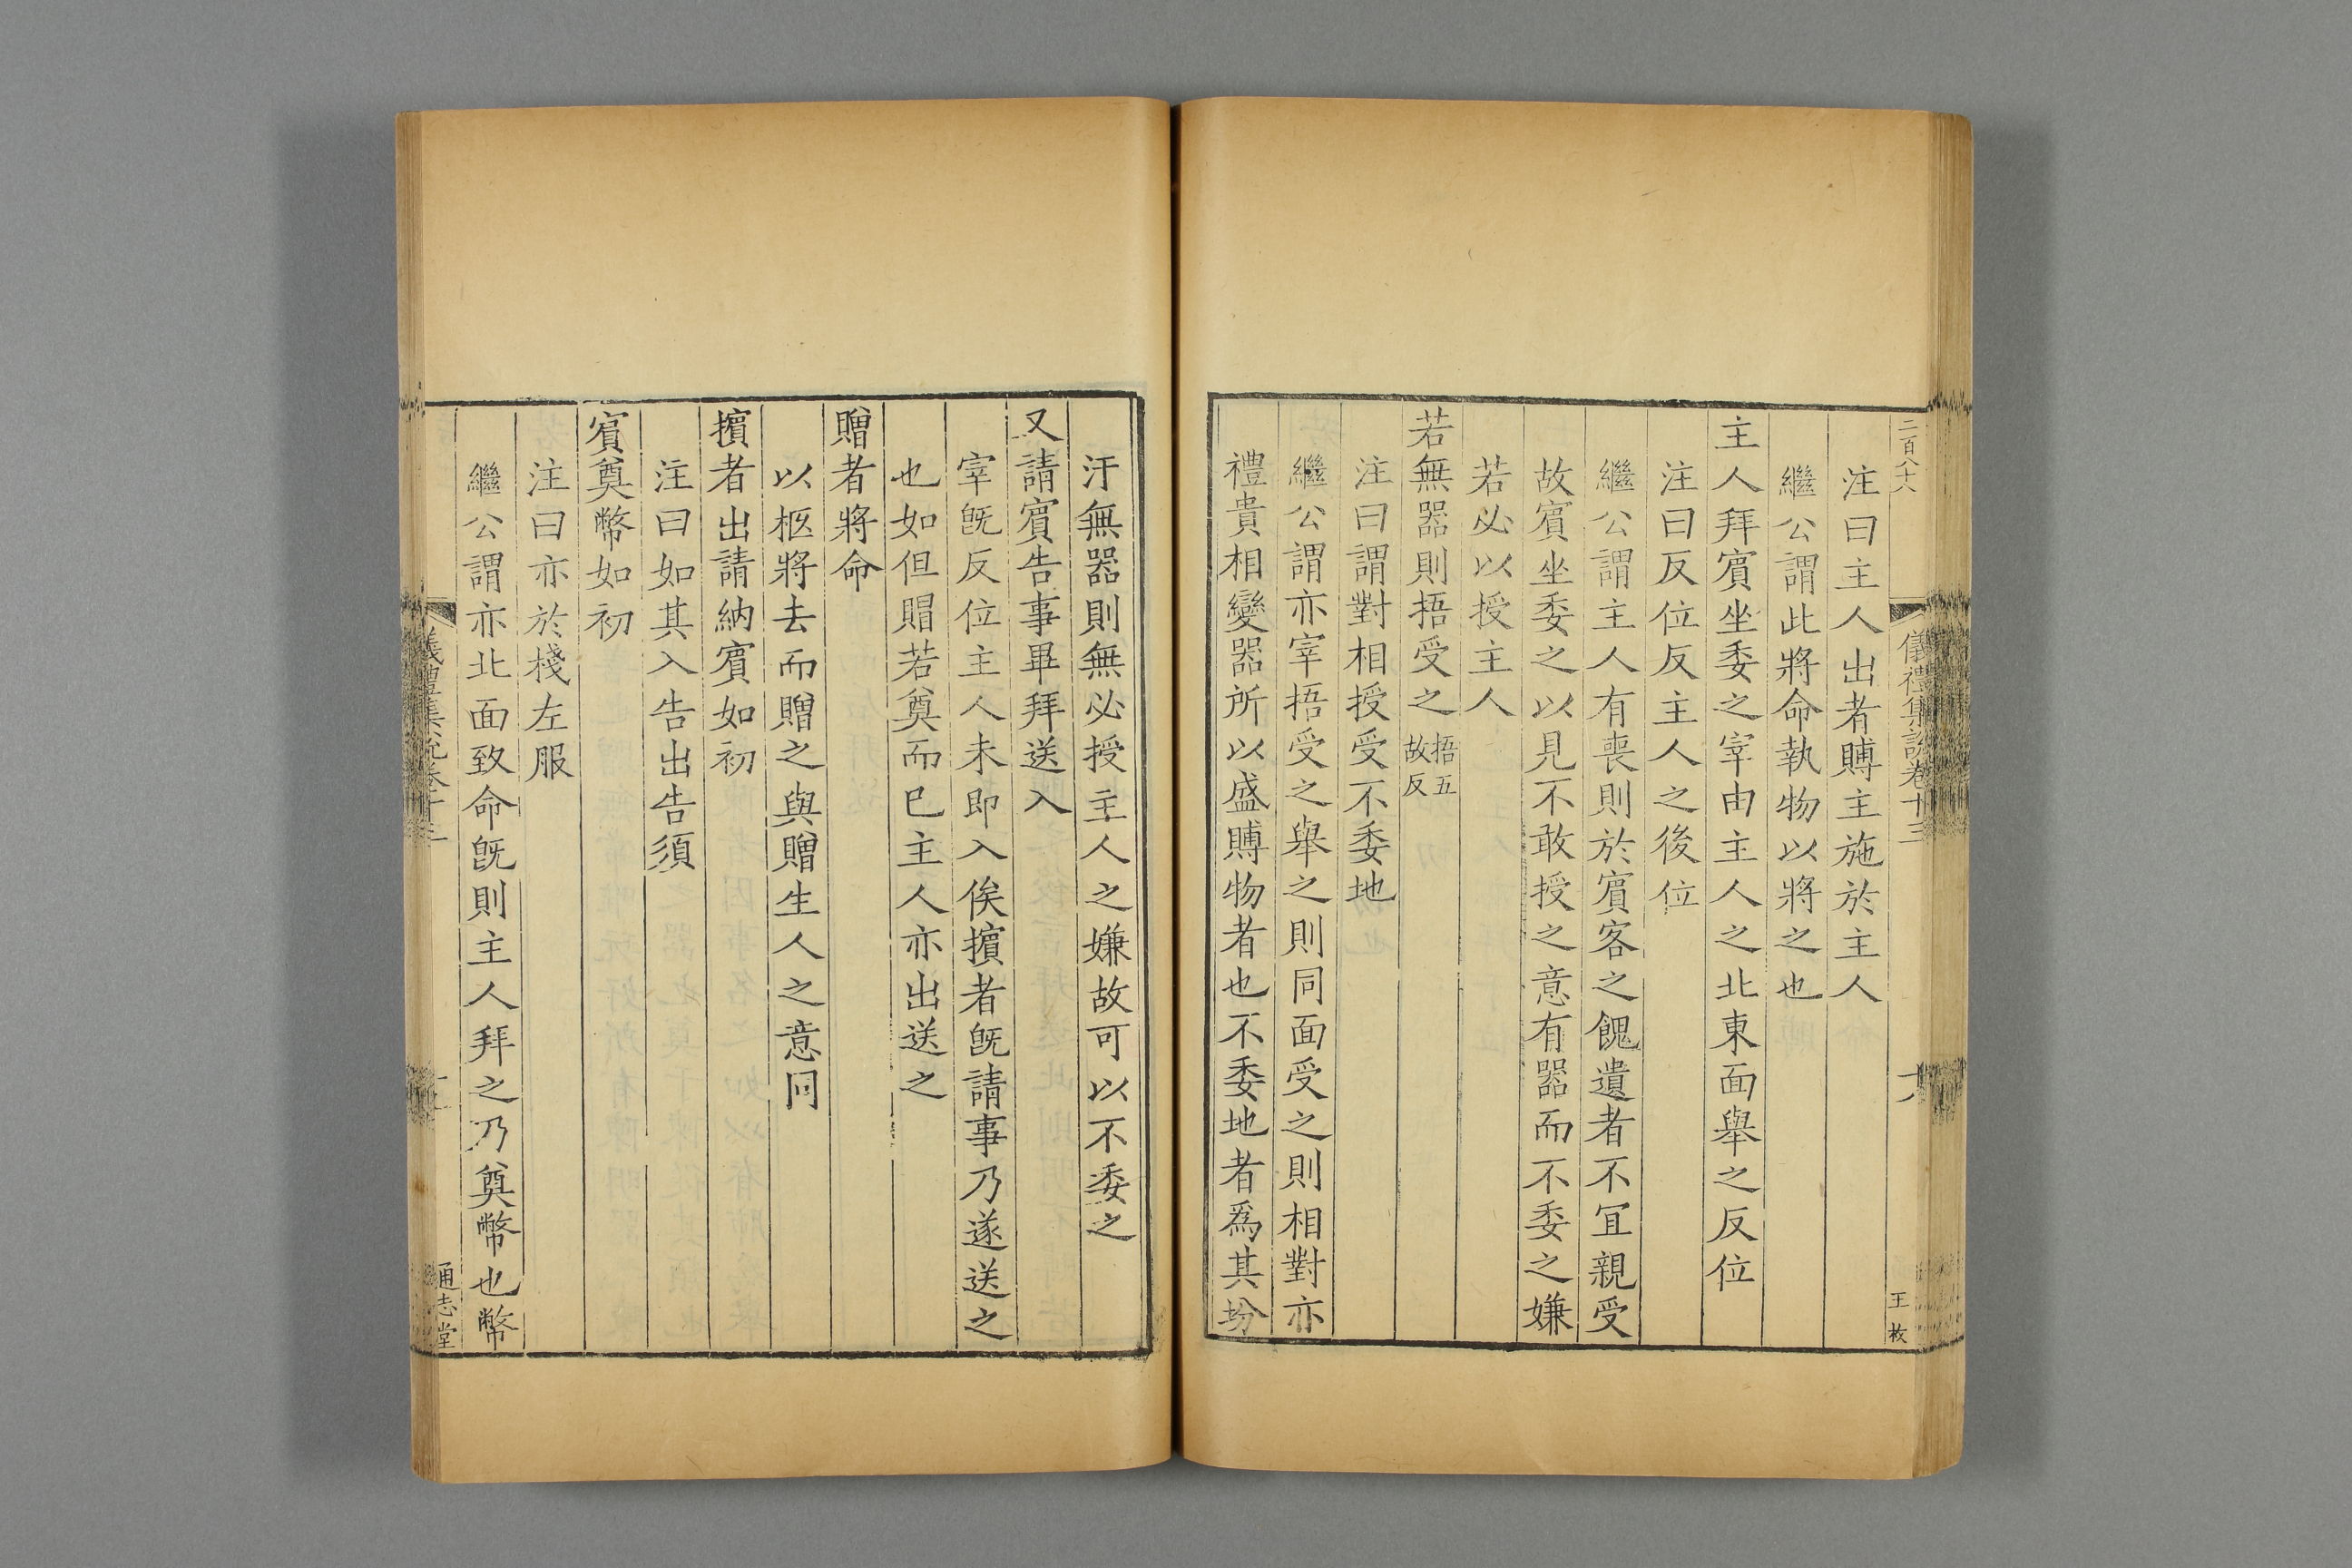 二百八十八
儀禮集說卷十三
王枚
注曰主人出者賻主施於主人
繼公謂此將命執物以將之也
主人拜賔坐委之宰由主人之北東面舉之反位
注曰反位反主人之後位
繼公謂主人有喪則於賔客之餽遺者不冝親受
故賔坐委之以見不敢授之意有器而不委之嫌
若必以授主人
若無器則捂受之捂五故反
注曰謂對相授受不委地
繼公謂亦宰捂受之舉之則同面受之則相對亦
禮貴相變器所以盛賻物者也不委地者爲其坋
汙無器則無必授主人之嫌故可以不委之
又請賔告事畢拜送入
宰旣反位主人未即入俟擯者旣請事乃遂送之
也如但賵若奠而巳主人亦出送之
贈者將命
以柩將去而贈之與贈生人之意同
擯者出請納賔如初
注曰如其入告出告須
賔奠幣如初
注曰亦於棧左服
繼公謂亦北面致命旣則主人拜之乃奠幣也幣
儀禮集說卷十三
通志堂